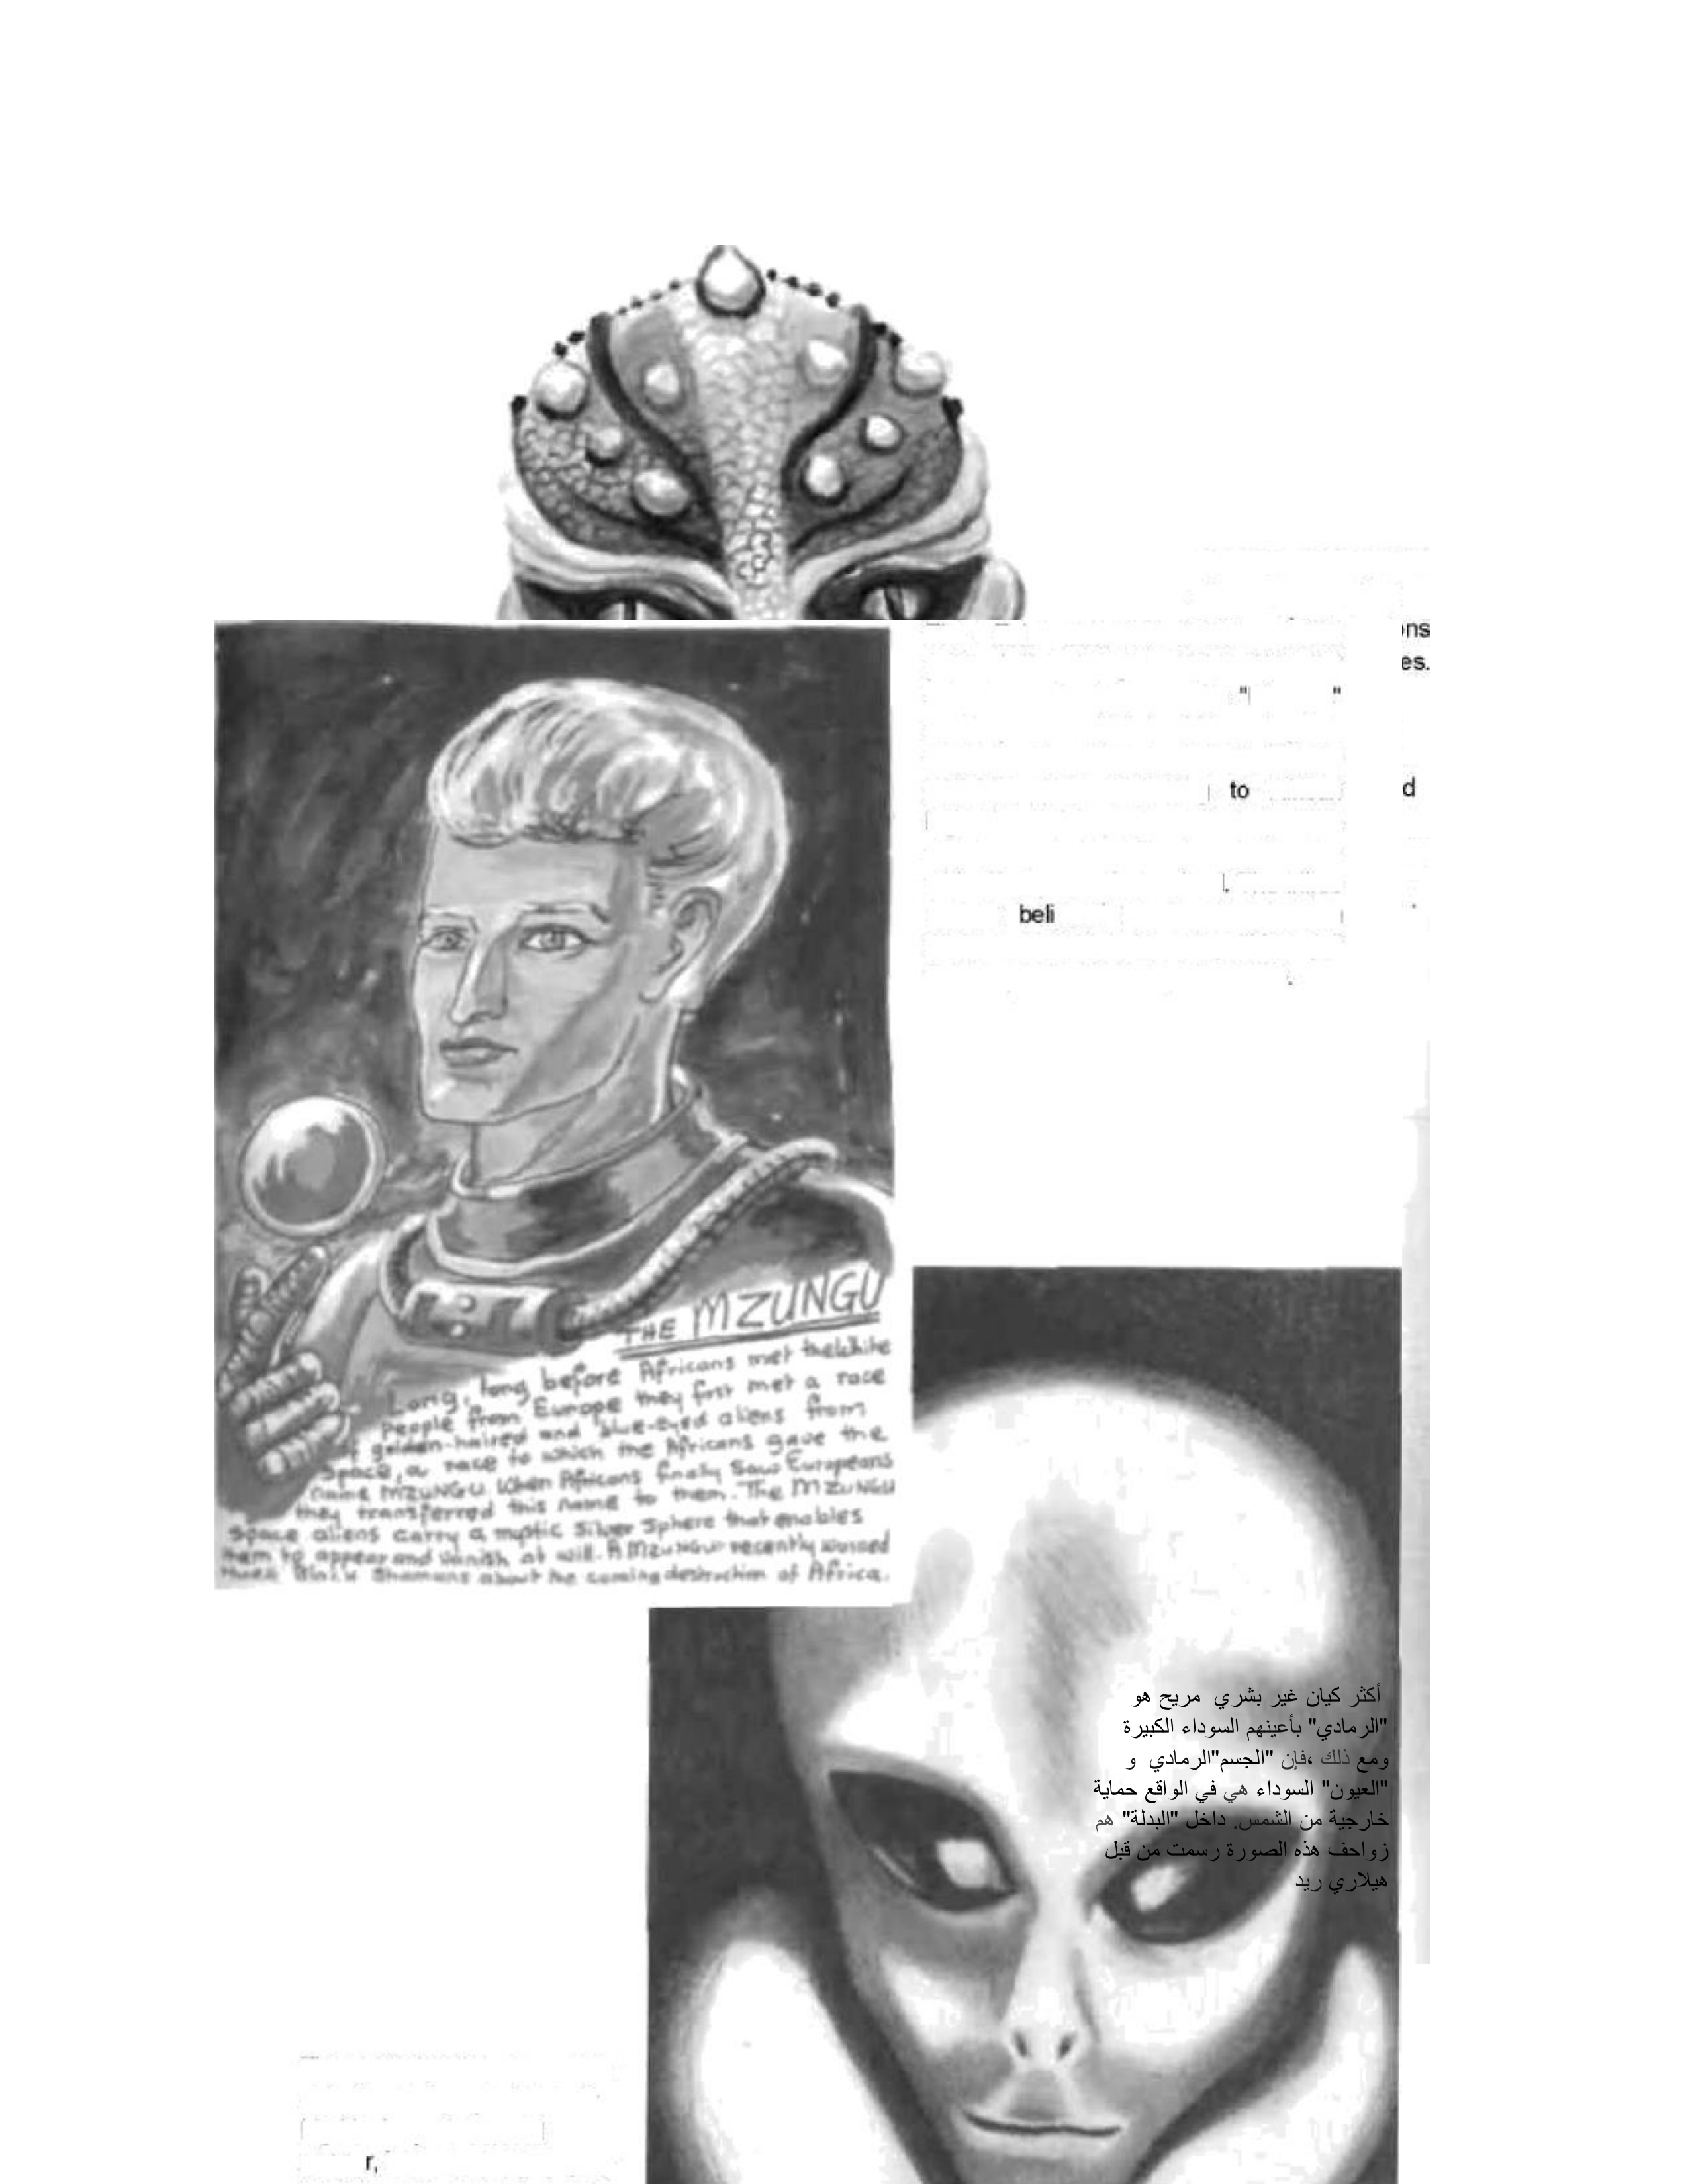 ons
es.
" "
to d
beli
THE MZUNGU
Long, long before Africans met the White
people from Europe they first met a race
of golden-haired and blue-eyed aliens from
space, a race to which the Africans gave the
name MZUNGU. When Africans finally saw Europeans
they transferred this name to them. The MZUNGU
space aliens carry a mystic silver sphere that enables
them to appear and vanish at will. A Mzungu recently warned
three Black Shamans about the coming destruction of Africa.
أكثر كيان غير بشري مريح هو
"الرمادي" بأعينهم السوداء الكبيرة
ومع ذلك ،فإن "الجسم"الرمادي و
"العيون" السوداء هي في الواقع حماية
خارجية من الشمس. داخل "البدلة" هم
زواحف هذه الصورة رسمت من قبل
هيلاري ريد
r,